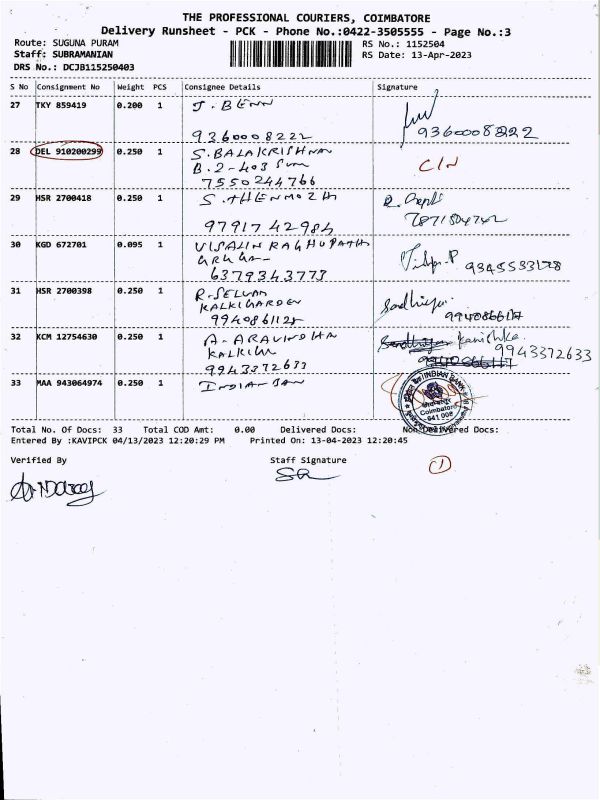 THE PROFESSIONAL COURIERS, COIMBATORE
Delivery Runsheet - PCK - Phone No.:0422-3505555 - Page No.:3
Route: SUGUNA PURAM
RS No.: 1152504
Staff: SUBRAMANIAN
RS Date: 13-Apr-2023
DRS No.: DCJB115250403
S No Consignment No Weight PCS Consignee Details Signature
27 TKY 859419 0.200 1 J. BENN
9360008222 9360008222
28 DEL 910200299 0.250 1 S. BALAKRISHNAN
B.2-403 Sum C/N
7550244766
29 HSR 2700418 0.250 1 S. THENMOZH
9791742984
30 KGD 672701 0.095 1 VISALIN RAGHUPATH
6379343773 9345533178
31 HSR 2700398 0.250 1 R. SELVAM
KALKIGARDEN
9940861128
32 KCM 12754630 0.250 1 A. ARAVINDHAN
KALKIGA 9943372633
9943372633
33 MAA 943064974 0.250 1 INDIAN BAN
INDIAN BANK
Coimbatore
641 008
Total No. Of Docs: 33 Total COD Amt: 0.00 Delivered Docs: Non Delivered Docs:
Entered By :KAVIPCK 04/13/2023 12:20:29 PM Printed On: 13-04-2023 12:20:45
Verified By Staff Signature
1